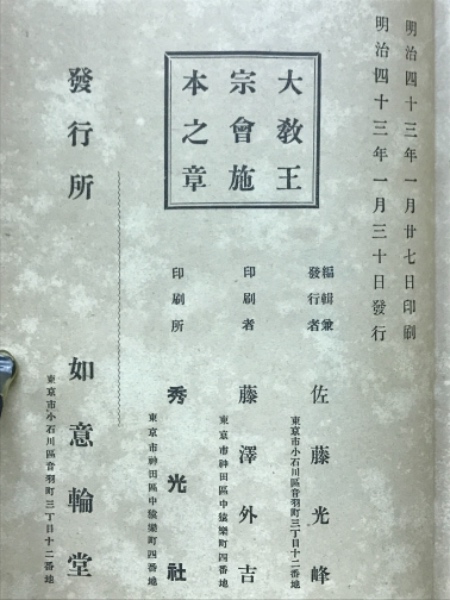 明治四十三年一月廿七日印刷
明治四十三年一月三十日發行
大教王
宗會施
本之章
編輯兼
發行者
佐藤光峰
東京市小石川區音羽町三丁目十二番地
印刷者
藤澤外吉
東京市神田區中猿樂町四番地
印刷所
秀光社
東京市神田區中猿樂町四番地
發行所
如意輪堂
東京市小石川區音羽町三丁目十二番地